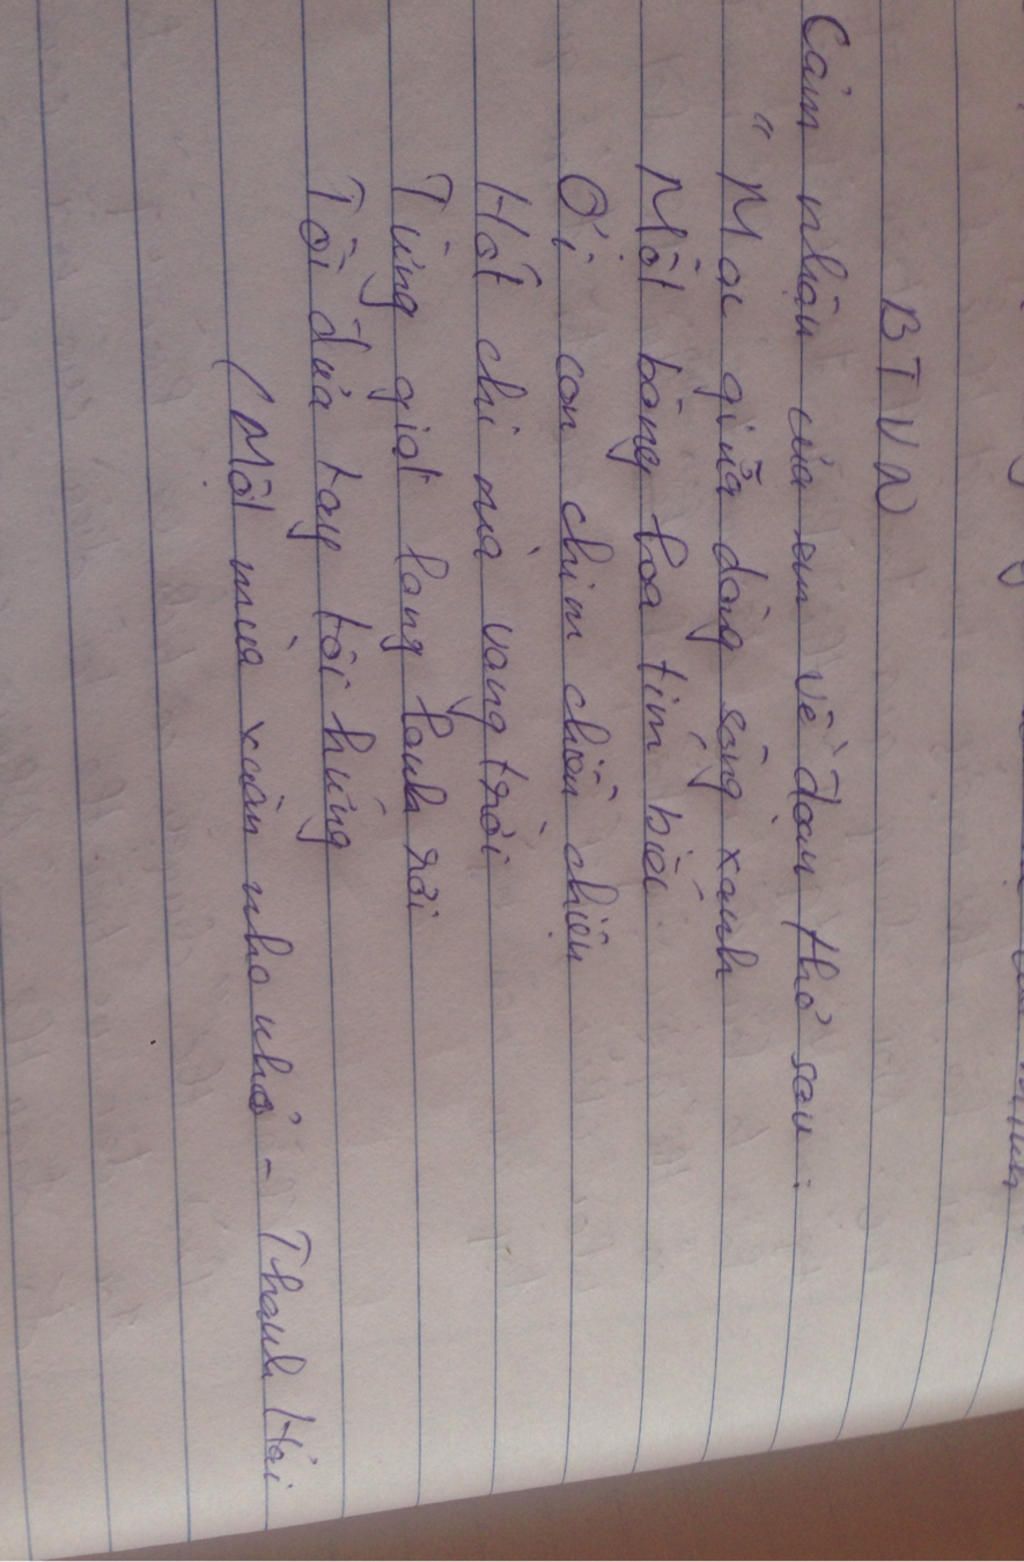 BTVN
Cảm nhận của em về đoạn thơ sau:
"Mọc giữa dòng sông xanh
Một bông hoa tím biếc
Ơi con chim chiền chiện
Hót chi mà vang trời
Từng giọt long lanh rơi
Tôi đưa tay tôi hứng
(Một mùa xuân nho nhỏ - Thanh Hải